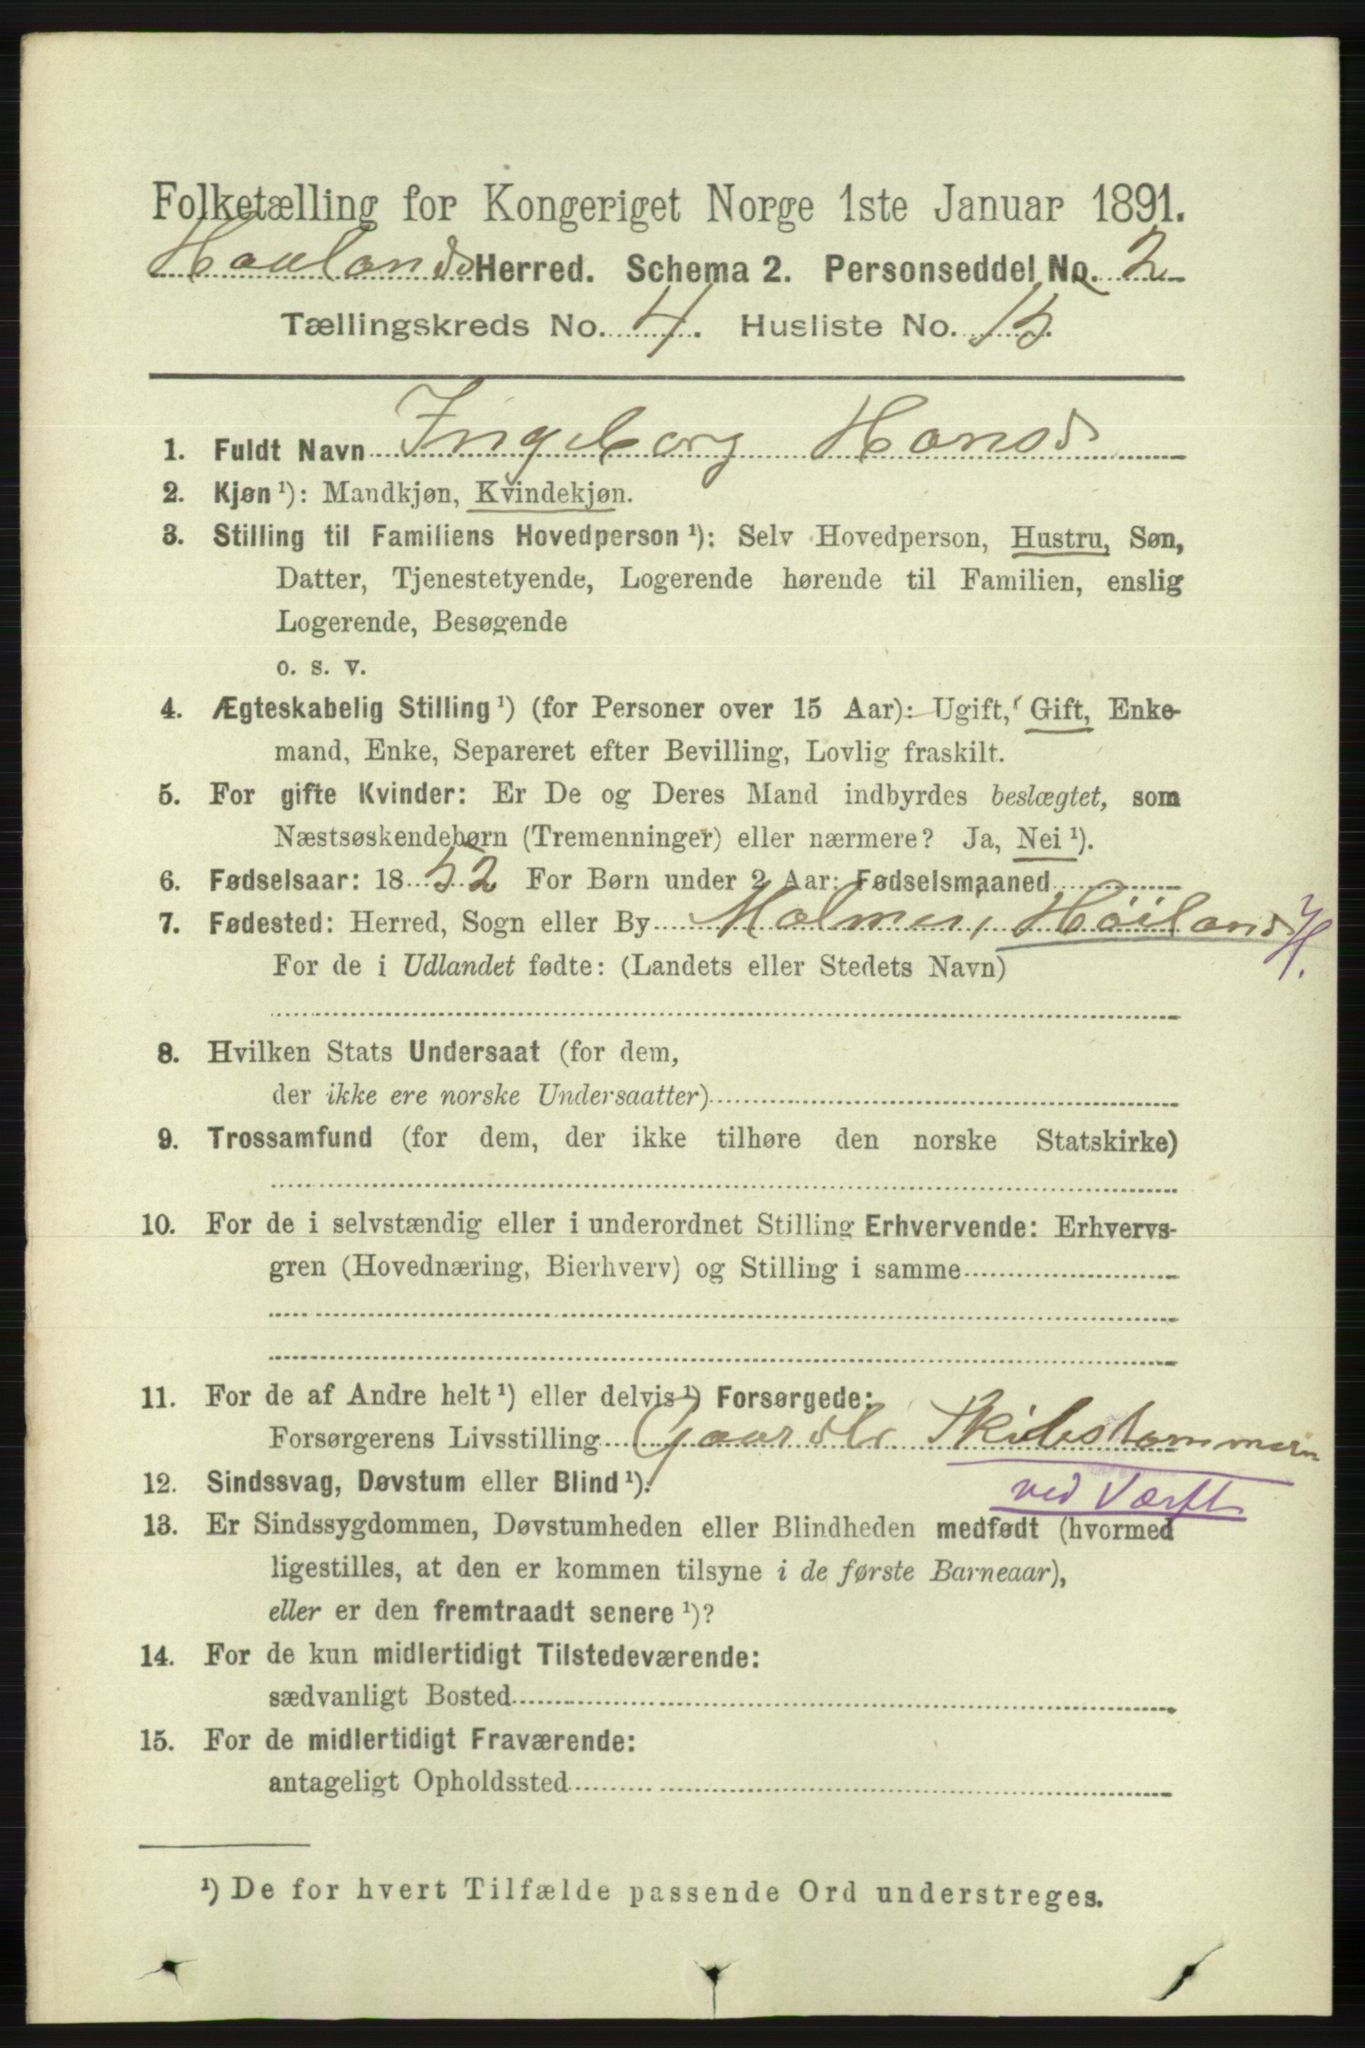 Folketælling for Kongeriget Norge 1ste Januar 1891.
Haalands Herred. Schema 2. Personseddel No. 2
Tællingskreds No. 4. Husliste No. 15.
1. Fuldt Navn Ingeborg Hansd
2. Kjøn ¹): Mandkjøn, Kvindekjøn.
3. Stilling til Familiens Hovedperson ¹): Selv Hovedperson, Hustru, Søn,
Datter, Tjenestetyende, Logerende hørende til Familien, enslig
Logerende, Besøgende
o. s. v.
4. Ægteskabelig Stilling ¹) (for Personer over 15 Aar): Ugift, Gift, Enke-
mand, Enke, Separeret efter Bevilling, Lovlig fraskilt.
5. For gifte Kvinder: Er De og Deres Mand indbyrdes beslægtet, som
Næstsøskendebørn (Tremenninger) eller nærmere? Ja, Nei ¹).
6. Fødselsaar: 1852 For Børn under 2 Aar: Fødselsmaaned
7. Fødested: Herred, Sogn eller By Malmei, Høilands H.
For de i Udlandet fødte: (Landets eller Stedets Navn)
8. Hvilken Stats Undersaat (for dem,
der ikke ere norske Undersaatter)
9. Trossamfund (for dem, der ikke tilhøre den norske Statskirke)
10. For de i selvstændig eller i underordnet Stilling Erhvervende: Erhvervs-
gren (Hovednæring, Bierhverv) og Stilling i samme
11. For de af Andre helt ¹) eller delvis ¹) Forsørgede:
Forsørgerens Livsstilling Gaardbr Skibstømmerm
12. Sindssvag, Døvstum eller Blind ¹). ved Værft
13. Er Sindssygdommen, Døvstumheden eller Blindheden medfødt (hvormed
ligestilles, at den er kommen tilsyne i de første Barneaar),
eller er den fremtraadt senere ¹)?
14. For de kun midlertidigt Tilstedeværende:
sædvanligt Bosted
15. For de midlertidigt Fraværende:
antageligt Opholdssted
¹) De for hvert Tilfælde passende Ord understreges.